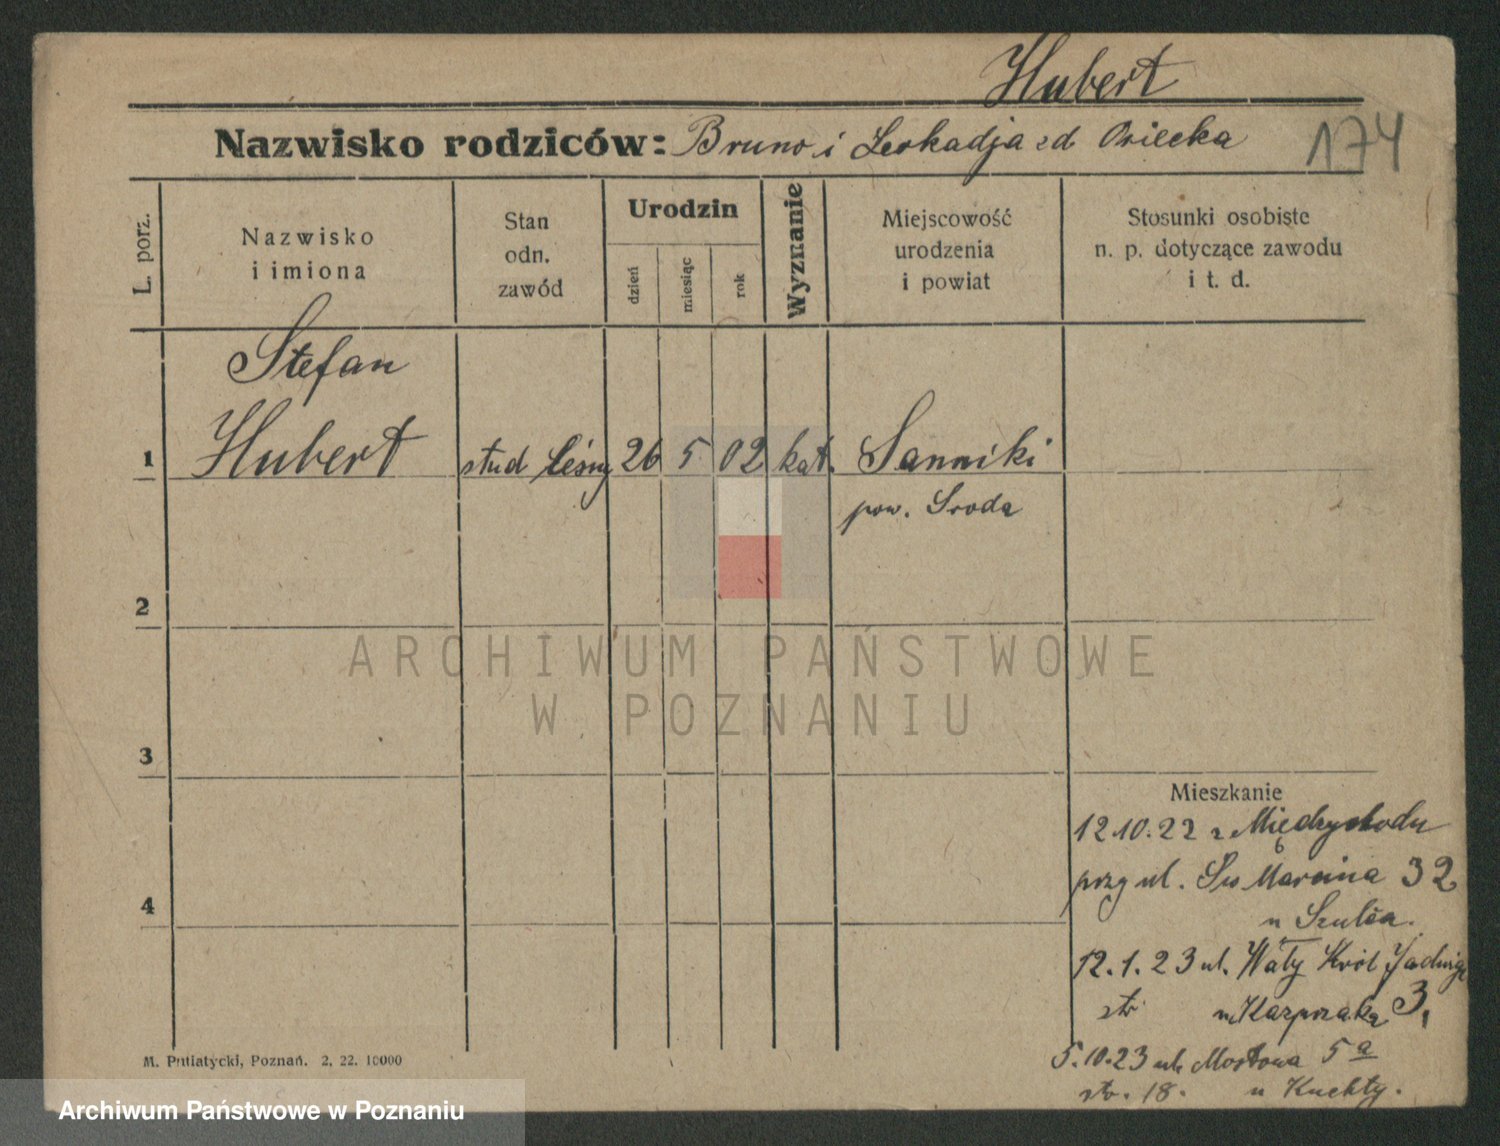 Hubert
Nazwisko rodziców: Bruno i Leokadja zd Osiecka 174
L. porz.
Nazwisko
i imiona
Stan
odn.
zawód
Urodzin
dzień
miesiąc
rok
Wyznanie
Miejscowość
urodzenia
i powiat
Stosunki osobiste
n. p. dotyczące zawodu
i t. d.
Stefan
1 Hubert stud leśny 26 5 02 kat. Sanniki
pow. Środa
2
ARCHIWUM PAŃSTWOWE
W POZNANIU
3
Mieszkanie
12.10.22 z Międzychodu
przy ul. Św Marcina 32
u Szulca.
4
12.1.23 ul. Wały Król Jadwigi
u Kasprzaka 3,
5.10.23 ul. Mostowa 5a
str. 18. u Kuchty.
M. Putiatycki, Poznań. 2, 22. 10000
Archiwum Państwowe w Poznaniu